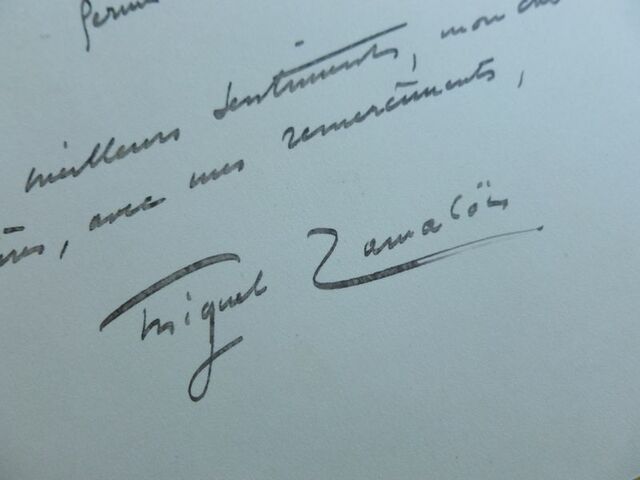 meilleurs sentiments, mon
avec mes remerciments,
Miguel Zamacoïs